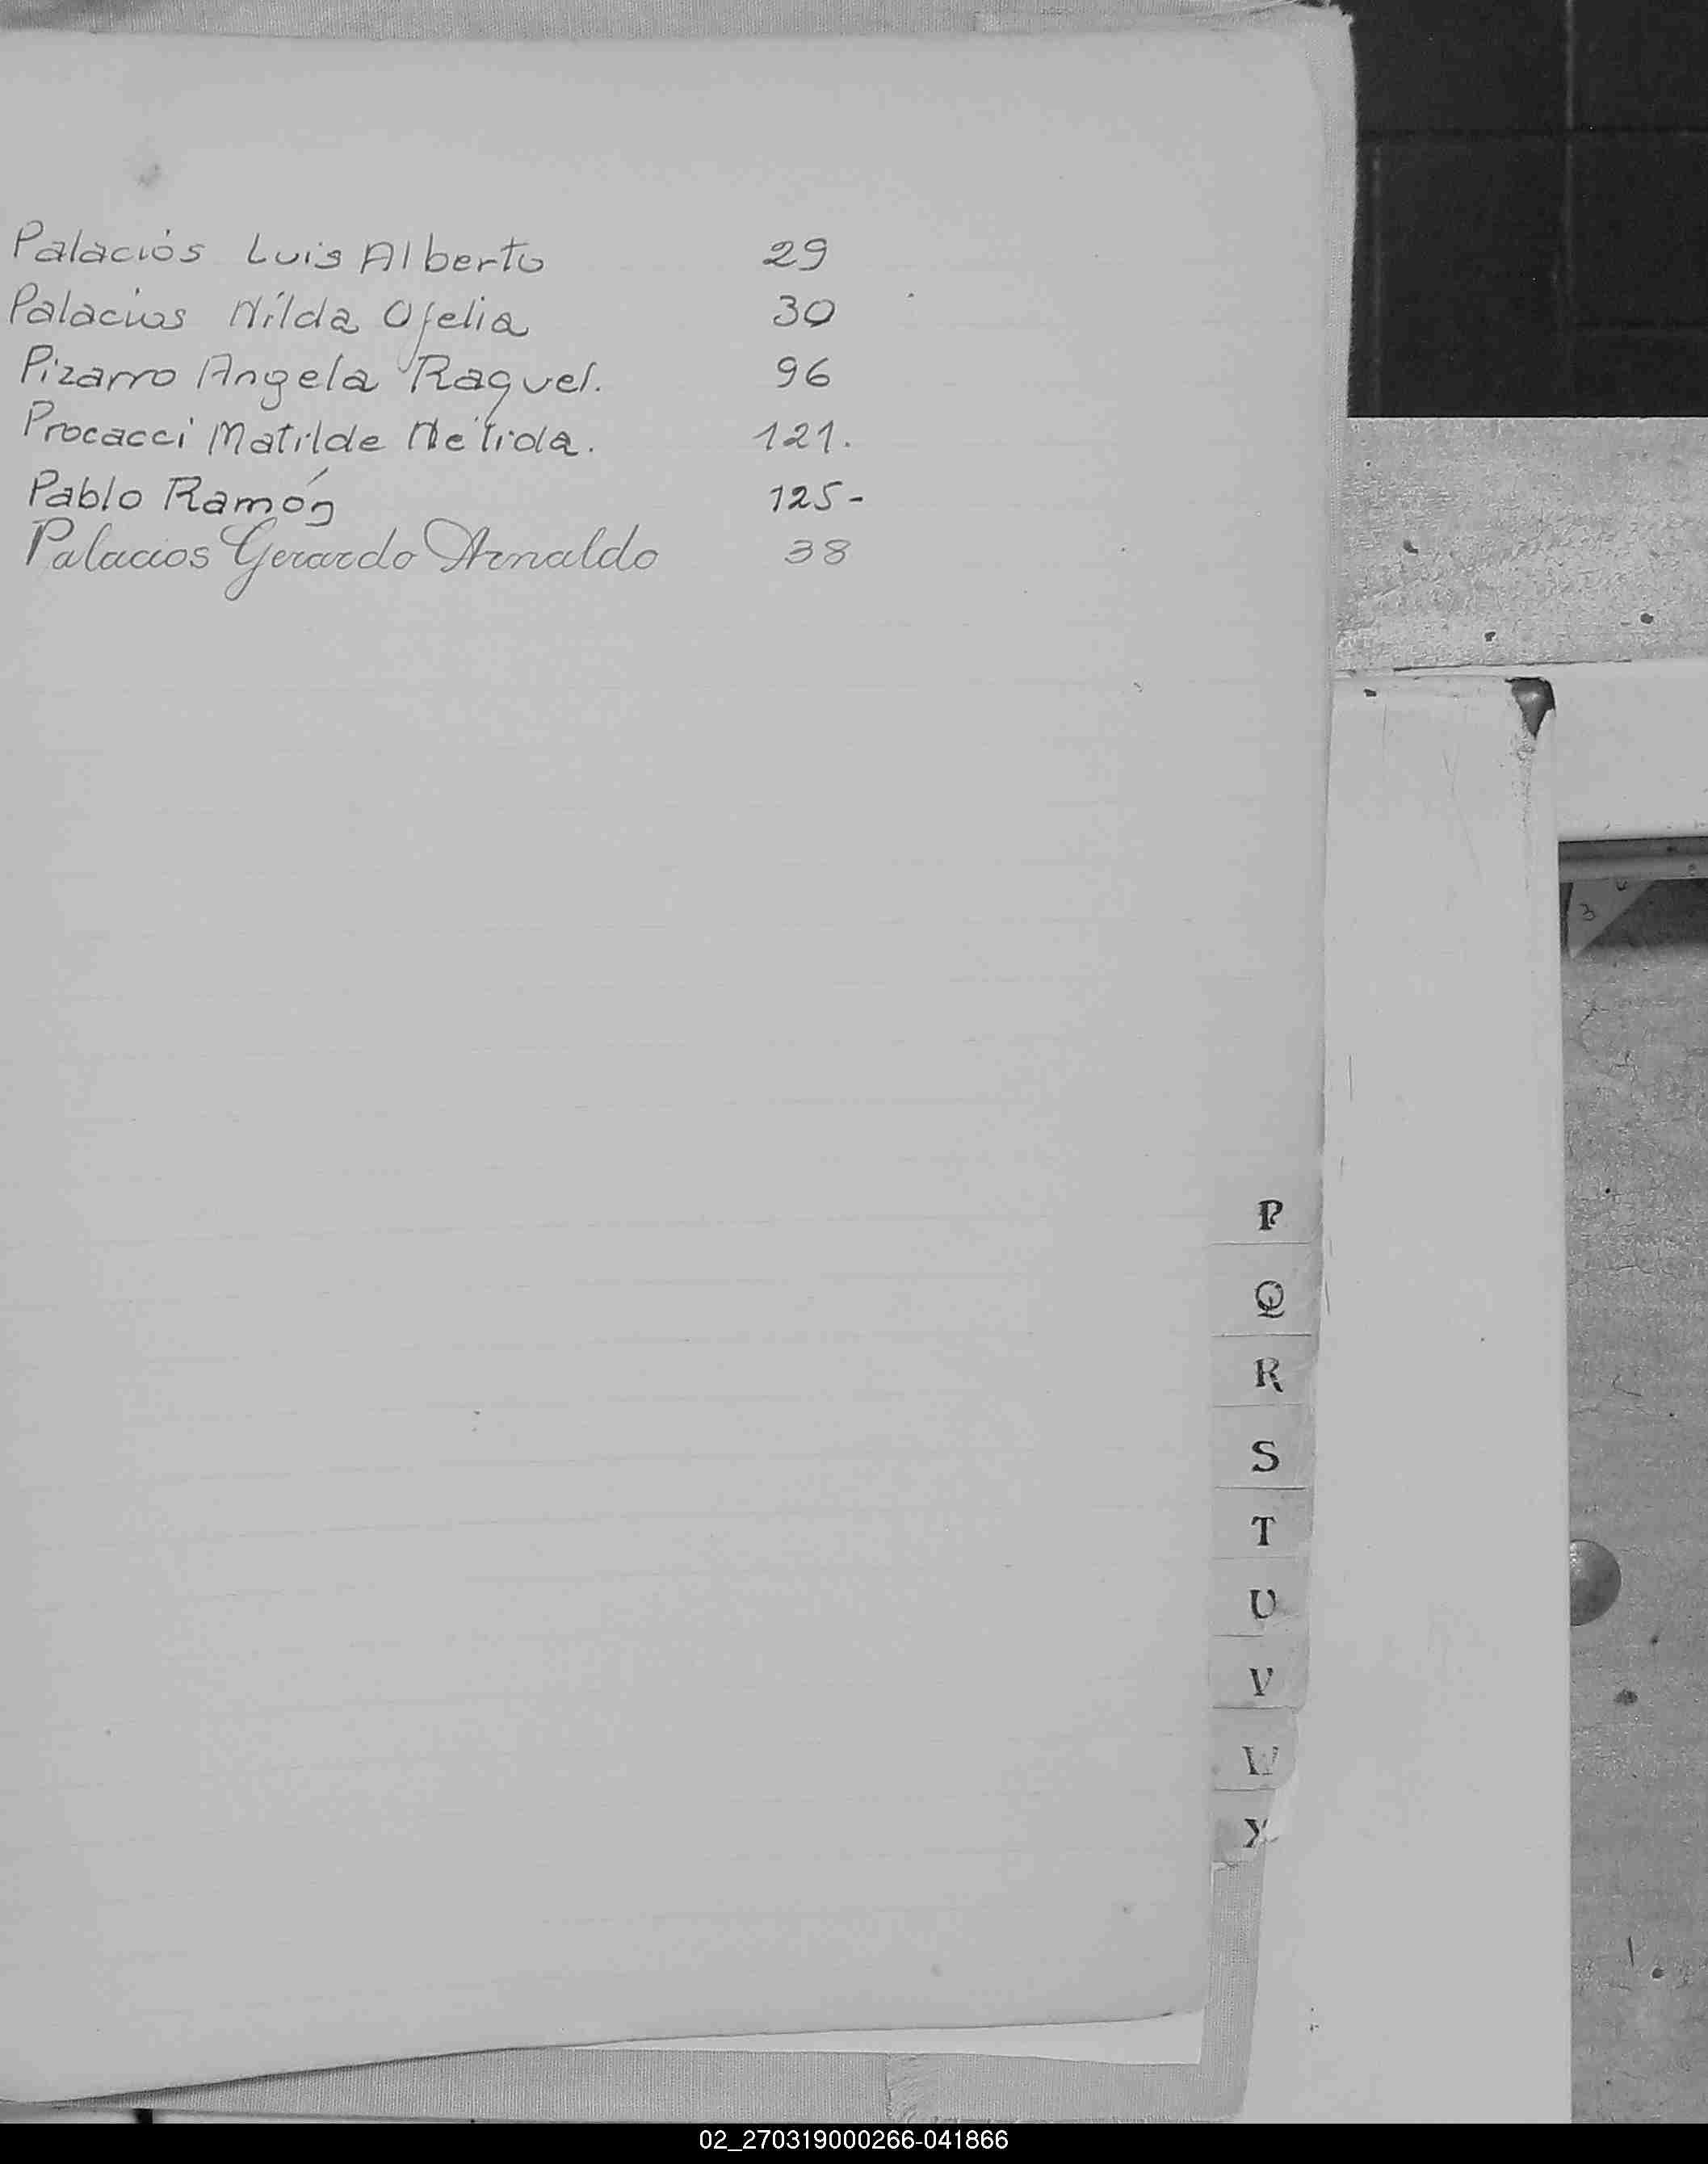 Palacios Luis Alberto 29
Palacios Nilda Ofelia 30
Pizarro Angela Raquel. 96
Procacci Matilde Nélida. 121.
Pablo Ramón 125-
Palacios Gerardo Arnaldo 38
P
Q
R
S
T
U
V
W
3
02_270319000266-041866